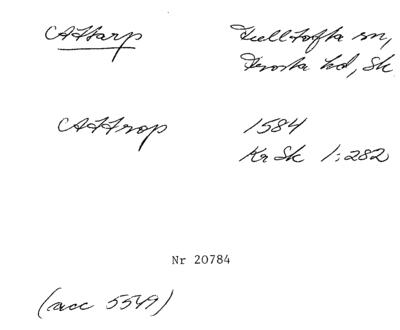 Attarp Fulltofta sn,
Frosta hd, Sk.
Attrop 1584
Kr Sk 1:282
Nr 20784
(acc 5549)